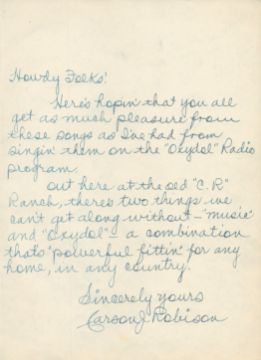 Howdy Folks!
Here's hopin' that you all
get as much pleasure from
these songs as I've had from
singin' them on the "Oxydol" Radio
program.
Out here at the old "C. R."
Ranch, there's two things we
can't get along without - "music"
and "Oxydol" - a combination
that's "powerful fittin'" for any
home, in any country.
Sincerely yours
Carson J. Robison